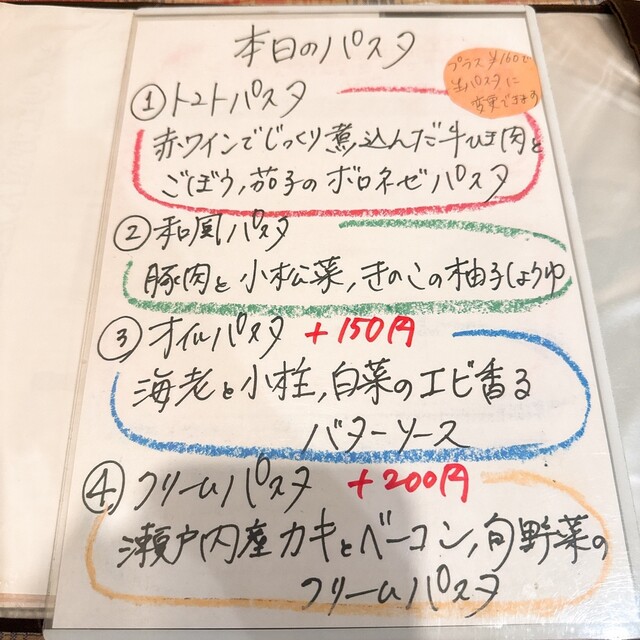 本日のパスタ
プラス¥160で
生パスタに
変更できます
①トマトパスタ
赤ワインでじっくり煮込んだ牛ひき肉と
ごぼう,茄子のボロネゼパスタ
②和風パスタ
豚肉と小松菜,きのこの柚子しょうゆ
③オイルパスタ +150円
海老と小柱,白菜のエビ香る
バターソース
④クリームパスタ +200円
瀬戸内産カキとベーコン,旬野菜の
クリームパスタ